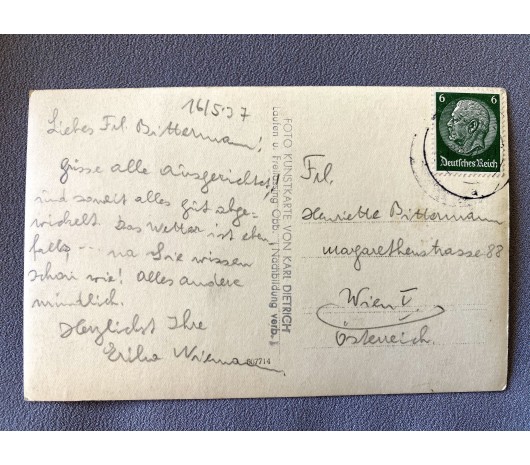 16/5 37
Liebes Frl. Bittermann!
Grüsse alle ausgerichtet
und soweit alles gut abge-
wickelt. Das Wetter ist eben
falls --- na Sie wissen
schon wie! Alles andere
mündlich.
Herzlichst Ihre
Erika
FOTO KUNSTKARTE VON KARL DIETRICH
Laufen u. Freilassing Obb. ! Nachbildung verb. !
607714
6 6
Deutsches Reich
Frl.
Henriette Bittermann
Margarethenstrasse 88
Wien V.
Österreich.